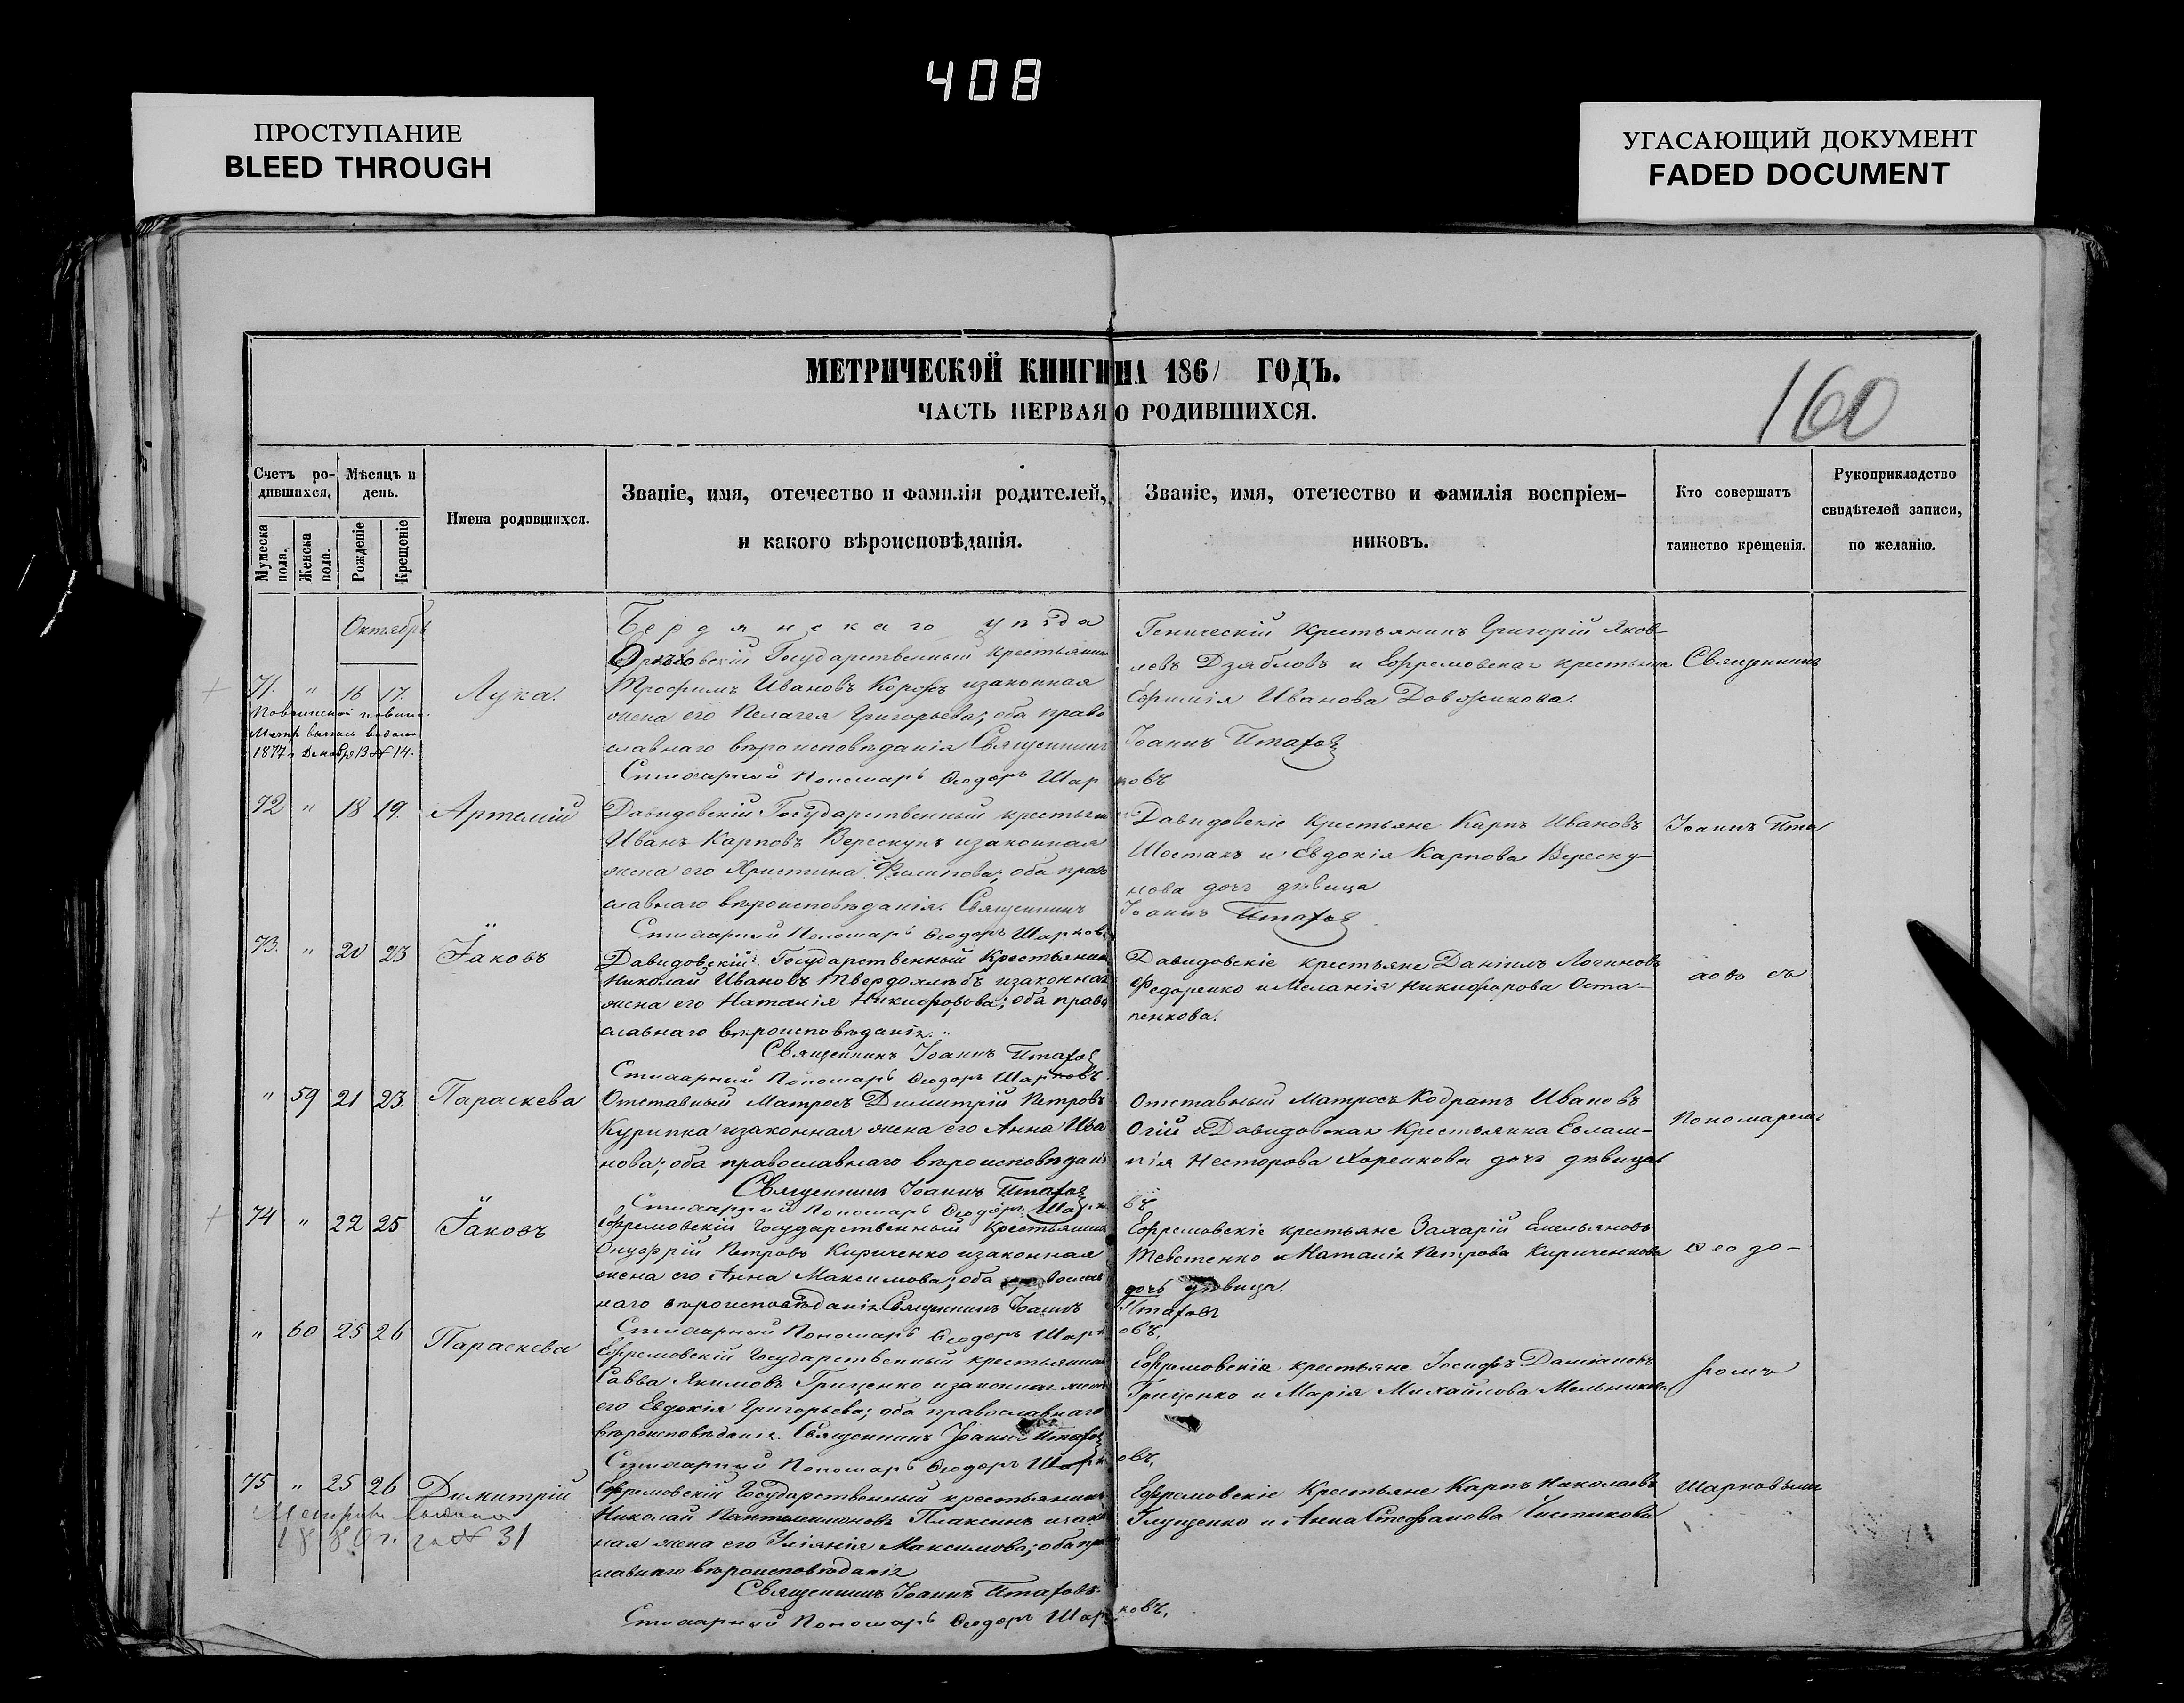 408
ПРОСТУПАНИЕ
BLEED THROUGH
УГАСАЮЩИЙ ДОКУМЕНТ
FADED DOCUMENT
МЕТРИЧЕСКОЙ КНИГИ НА 1861 ГОДЪ.
160
ЧАСТЬ ПЕРВАЯ О РОДИВШИХСЯ.
Счетъ ро-
дившихся.
Мужеска пола.
Женска пола.
Мѣсяцъ и
день.
Рожденіе
Крещеніе
Имена родившихся.
Званіе, имя, отечество и фамилія родителей,
и какого вѣроисповѣданія.
Званіе, имя, отечество и фамилія воспріем-
никовъ.
Кто совершатъ
таинство крещенія.
Рукоприкладство
свидѣтелей записи,
по желанію.
Октябрь
71. " 16 17. Лука.
1877 Декабря 13 № 14.
Бердянскаго уѣзда
Государственный крестьянинъ
Трофимъ Ивановъ Корожъ изаконная
жена его Пелагея Григорьева; оба право
славнаго вѣроисповѣданія Священникъ
Іоаннъ Птаховъ
Стихарный Пономарь Ѳеодоръ Шарковъ
Геническій крестьянинъ Григорій Яков-
левъ Дзябловъ и Ефремовская крестьянка
Ефимія Иванова Довженкова.
Священникъ
72 " 18 19. Артемій
Давидовскій Государственный крестьянинъ
Иванъ Карповъ Верескунъ изаконная
жена его Христина Филипова; оба право
славнаго вѣроисповѣданія. Священникъ
Іоаннъ Птаховъ
Стихарный Пономарь Ѳеодоръ Шарковъ
Давидовскіе крестьяне Карпъ Ивановъ
Шостакъ и Евдокія Карпова Вереску-
нова дочь дѣвица
Іоаннъ Пта
73. " 20 23 Іаковъ
Давидовскій Государственный Крестьянинъ
Николай Ивановъ Твердохлѣбъ изаконная
жена его Наталія Никифорова; оба право
славнаго вѣроисповѣданія.
Священникъ Іоаннъ Птаховъ
Стихарный Пономарь Ѳеодоръ Шарковъ.
Давидовскіе крестьяне Даніилъ Логиновъ
Федоренко и Меланія Никифорова Оста-
пенкова.
ховъ съ
" 59 21 23. Параскева
Отставный Матросъ Димитрій Петровъ
Курипка изаконная жена его Анна Ива
нова; оба православнаго вѣроисповѣданія
Священникъ Іоаннъ Птаховъ
Стихарный Пономарь Ѳеодоръ Шарковъ
Отставный Матросъ Кодратъ Ивановъ
Огій и Давидовская Крестьянка Евлам-
пія Несторова Хоренкова дочь дѣвица
Пономаремъ
74 " 22 25 Іаковъ
Ефремовскій Государственный Крестьянинъ
Онуфрій Петровъ Кириченко изаконная
жена его Анна Максимова; оба православ
наго вѣроисповѣданія Священникъ Іоаннъ
Птаховъ
Стихарный Пономарь Ѳеодоръ Шарковъ.
Ефремовскіе крестьяне Захарій Емельяновъ
Тевстенко и Наталія Петрова Кириченкова
дочь дѣвица.
Ѳеодо-
" 60 25 26 Параскева
Ефремовскій Государственный крестьянинъ
Савва Якимовъ Гриценко изаконная жена
его Евдокія Григорьева; оба православнаго
вѣроисповѣданія. Священникъ Іоаннъ Птаховъ
Стихарный Пономарь Ѳеодоръ Шарковъ.
Ефремовскіе крестьяне Іосифъ Даміановъ
Гриценко и Марія Михайлова Мельникова
ромъ
75 " 25 26 Димитрій
1880 г. за № 31
Ефремовскій Государственный крестьянинъ
Николай Пантелеимоновъ Плаксинъ изакон
ная жена его Уліянія Максимова; оба пра
славнаго вѣроисповѣданія
Священникъ Іоаннъ Птаховъ.
Стихарный Пономарь Ѳеодоръ Шарковъ.
Ефремовскіе Крестьяне Карпъ Николаевъ
Глущенко и Анна Стефанова Чистикова
Шарковымъ